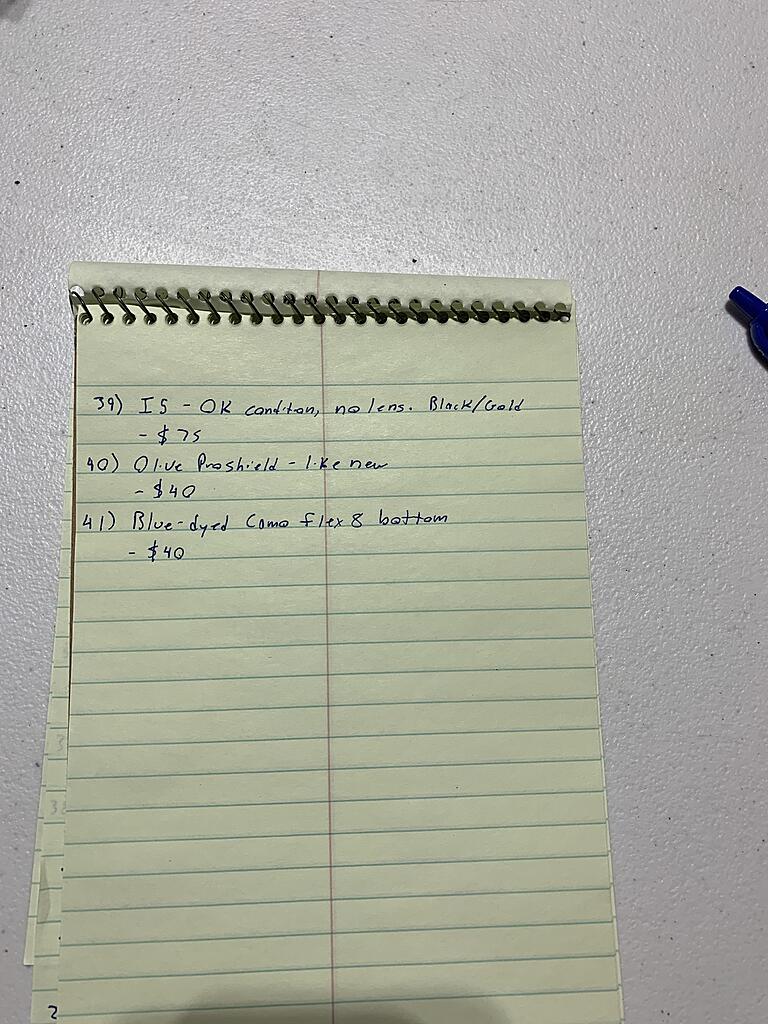 39) I5 - OK condition, no lens. Black/Gold
- $75
40) Olive Proshield - like new
- $40
41) Blue-dyed Camo flex 8 bottom
- $40
2